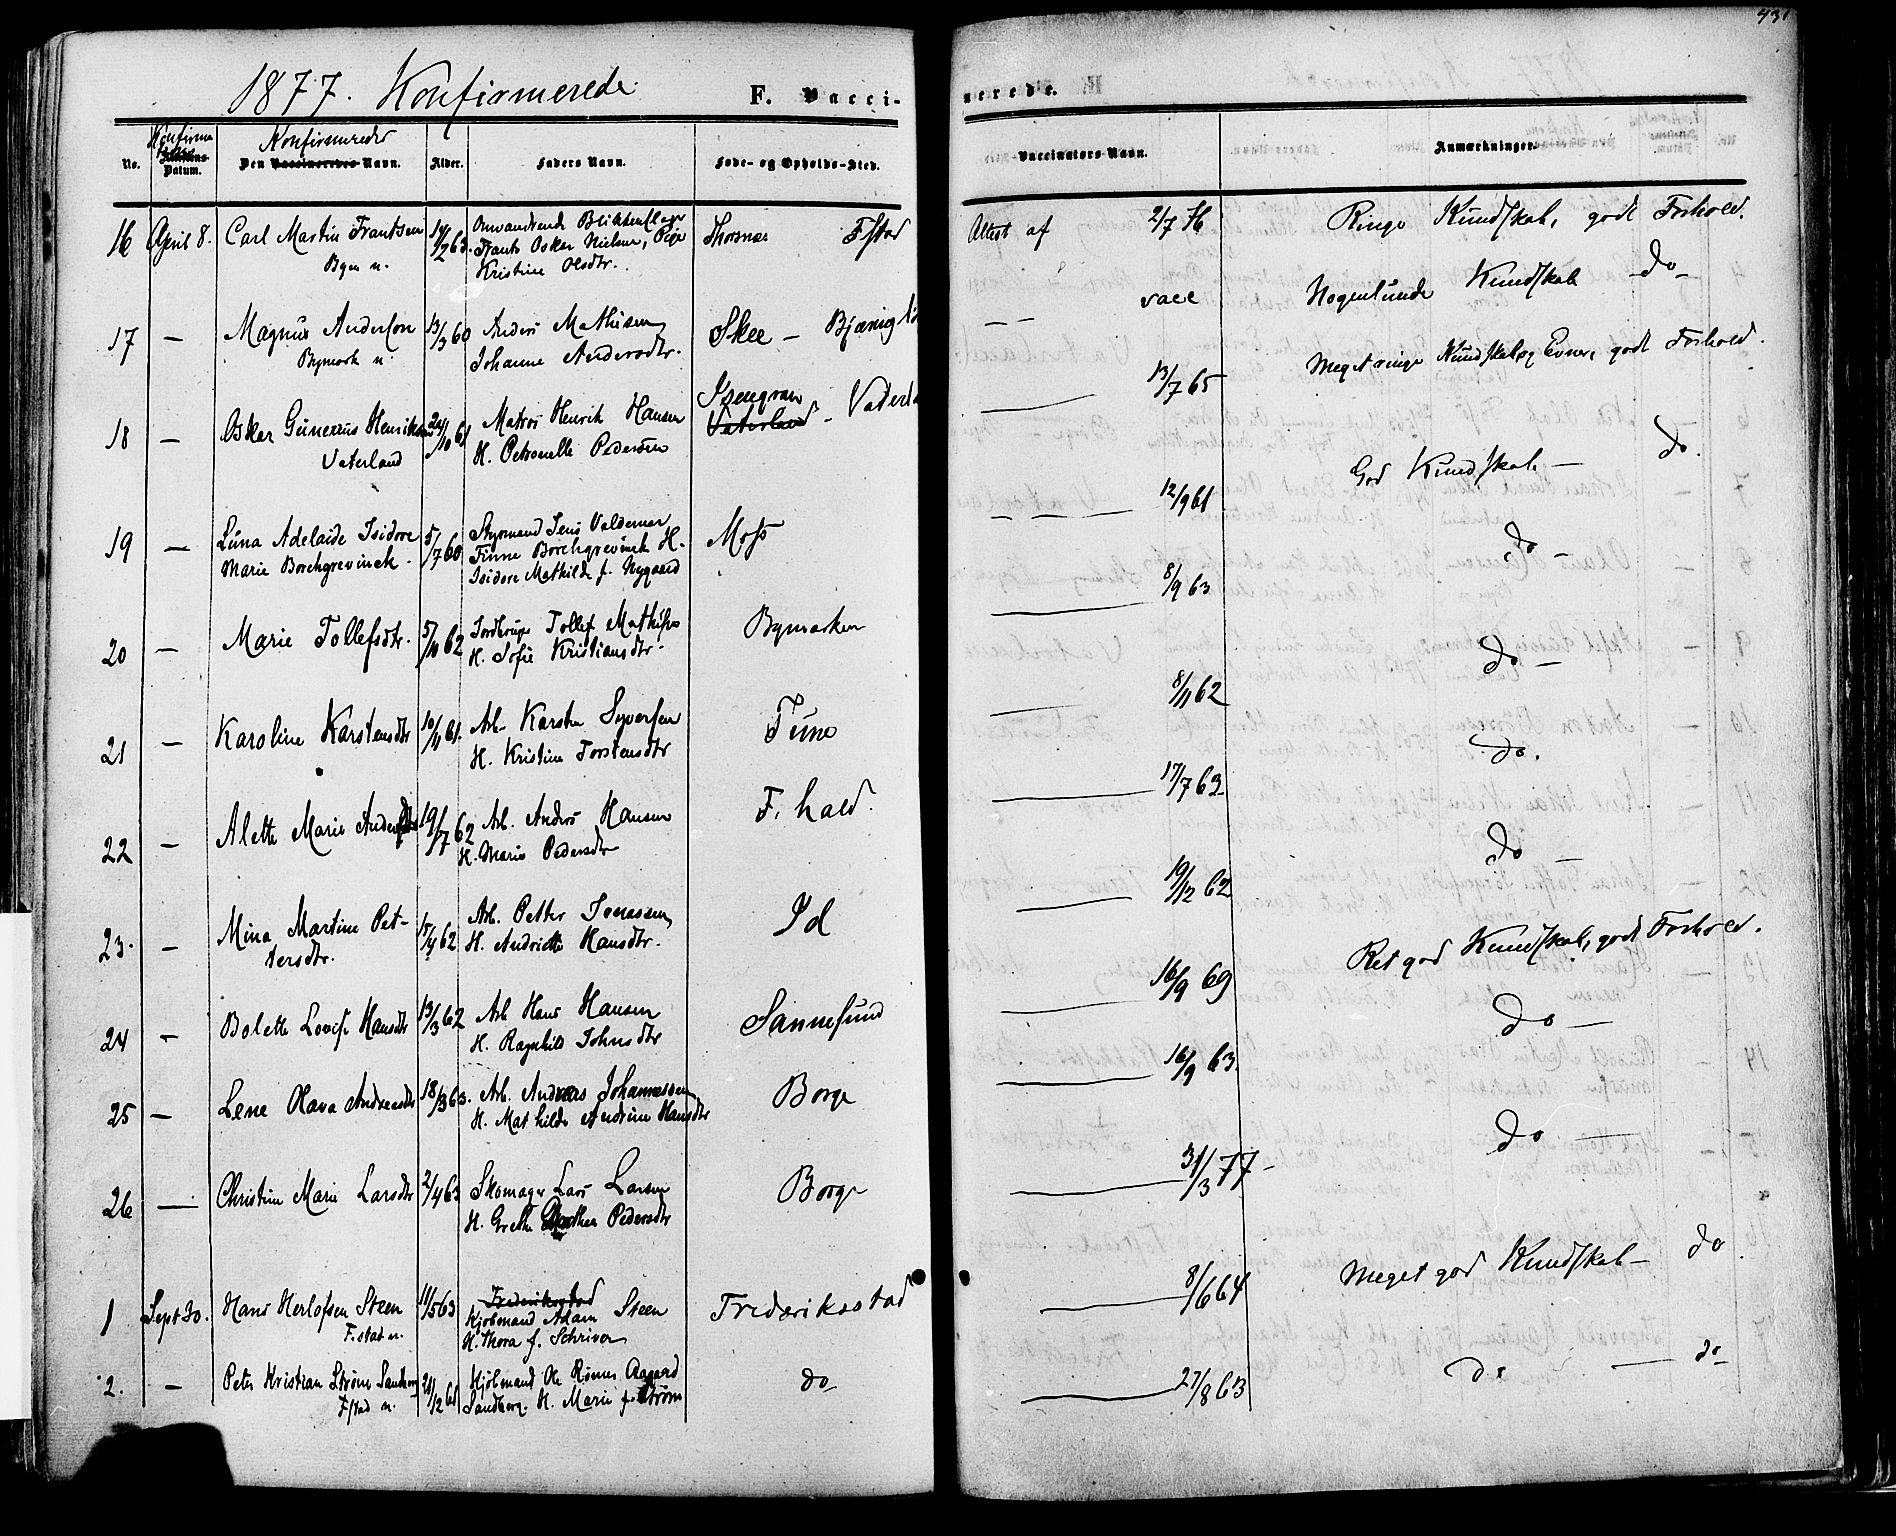 1877. Konfirmerede
F. Vacci-
nerede.
431
No.
Konfirma
Datum.
Konfirmeredes
Den Vaccineredes Navn.
Alder.
Faders Navn.
Føde- og Opholds-Sted.
Vaccinators Navn.
Anmærkninger.
16 April 8. Carl Martin Frantsen
Byen n.
14/2 63.
Omvandrende Blikkenslager
Frants Oskar Nielsen, Pige
Kristine Olsdtr.
Thorsnæs Fstad
Attest af 2/7 76
Ringe Kundskab, godt Forhold.
17 — Magnus Anderson
Bymark n.
13/3 60
Anders Mathisen
Johanne Andersdtr.
Skee —
— — vacc
Nogenlunde Kundskab do
18 — Oskar Gunerius Henriksen
Vaterland
24/10 61
Matros Henrik Hansen
H. Petronelle Pedersen
Isengran
Vaterland -
— 13/7 65
Meget ringe Kundskab og Evner, godt Forhold.
19 — Luna Adelaide Isidore
Marie Borchgrevinck.
5/7 60
Styrmand Jens Valdemar
Finne Borchgrevinck H.
Isidore Mathilde f. Nygaard
Moss
— 12/9 61
God Kundskab — do.
20 — Marie Tollefsdtr.
5/10 62
Tollef Mathiss
H. Sofie Kristiansdtr.
Bymarken
— 8/9 63
do —
21 — Karoline Karstensdtr
10/11 61.
Arb. Karsten Syversen
H. Kristine Torstensdtr
Tune
— 8/11 62
do —
22 — Alette Marie Andersdtr
19/7 62
Arb. Anders Hansen
H. Marie Pedersdtr
F. hald.
— 17/7 63
do.
23. — Mina Martine Pet-
tersdtr.
15/4 62
Arb. Petter Jonassen
H. Andrette Hansdtr.
Id
— 19/12 62
do —
24 — Bolette Lovise Hansdtr
13/3 62
Arb Hans Hansen
H. Ragnhild Johnsdtr
Sannesund
— 16/9 69
Ret god Kundskab, godt Forhold.
25 — Lene Olava Andreasdtr
18/3 63.
Arb. Andreas Johannessen
H. Mathilde Andrine Hansdtr
Borge
— 16/9 63.
do —
26 — Christine Marie Larsdtr
2/4 63
Skomager Lars Larsen
H. Grethe Pedersdtr
Borge
— 31/3 77 -
do —
1 Sept 30. Hans Herlofsen Steen
F. stad n.
11/5 63
Frederiksstad
Kjøbmand Adam Steen
H. Thora f. Schriver
Frederiksstad
— 8/6 64
Meget god Kundskab — do.
2. — Peter Kristian Strøm Sandberg
Fstad n.
21/12 61
Kjøbmand Ole Rømer Aagaard
Sandberg. H. Marie f. Strøm
do
— 27/8 63
do — do